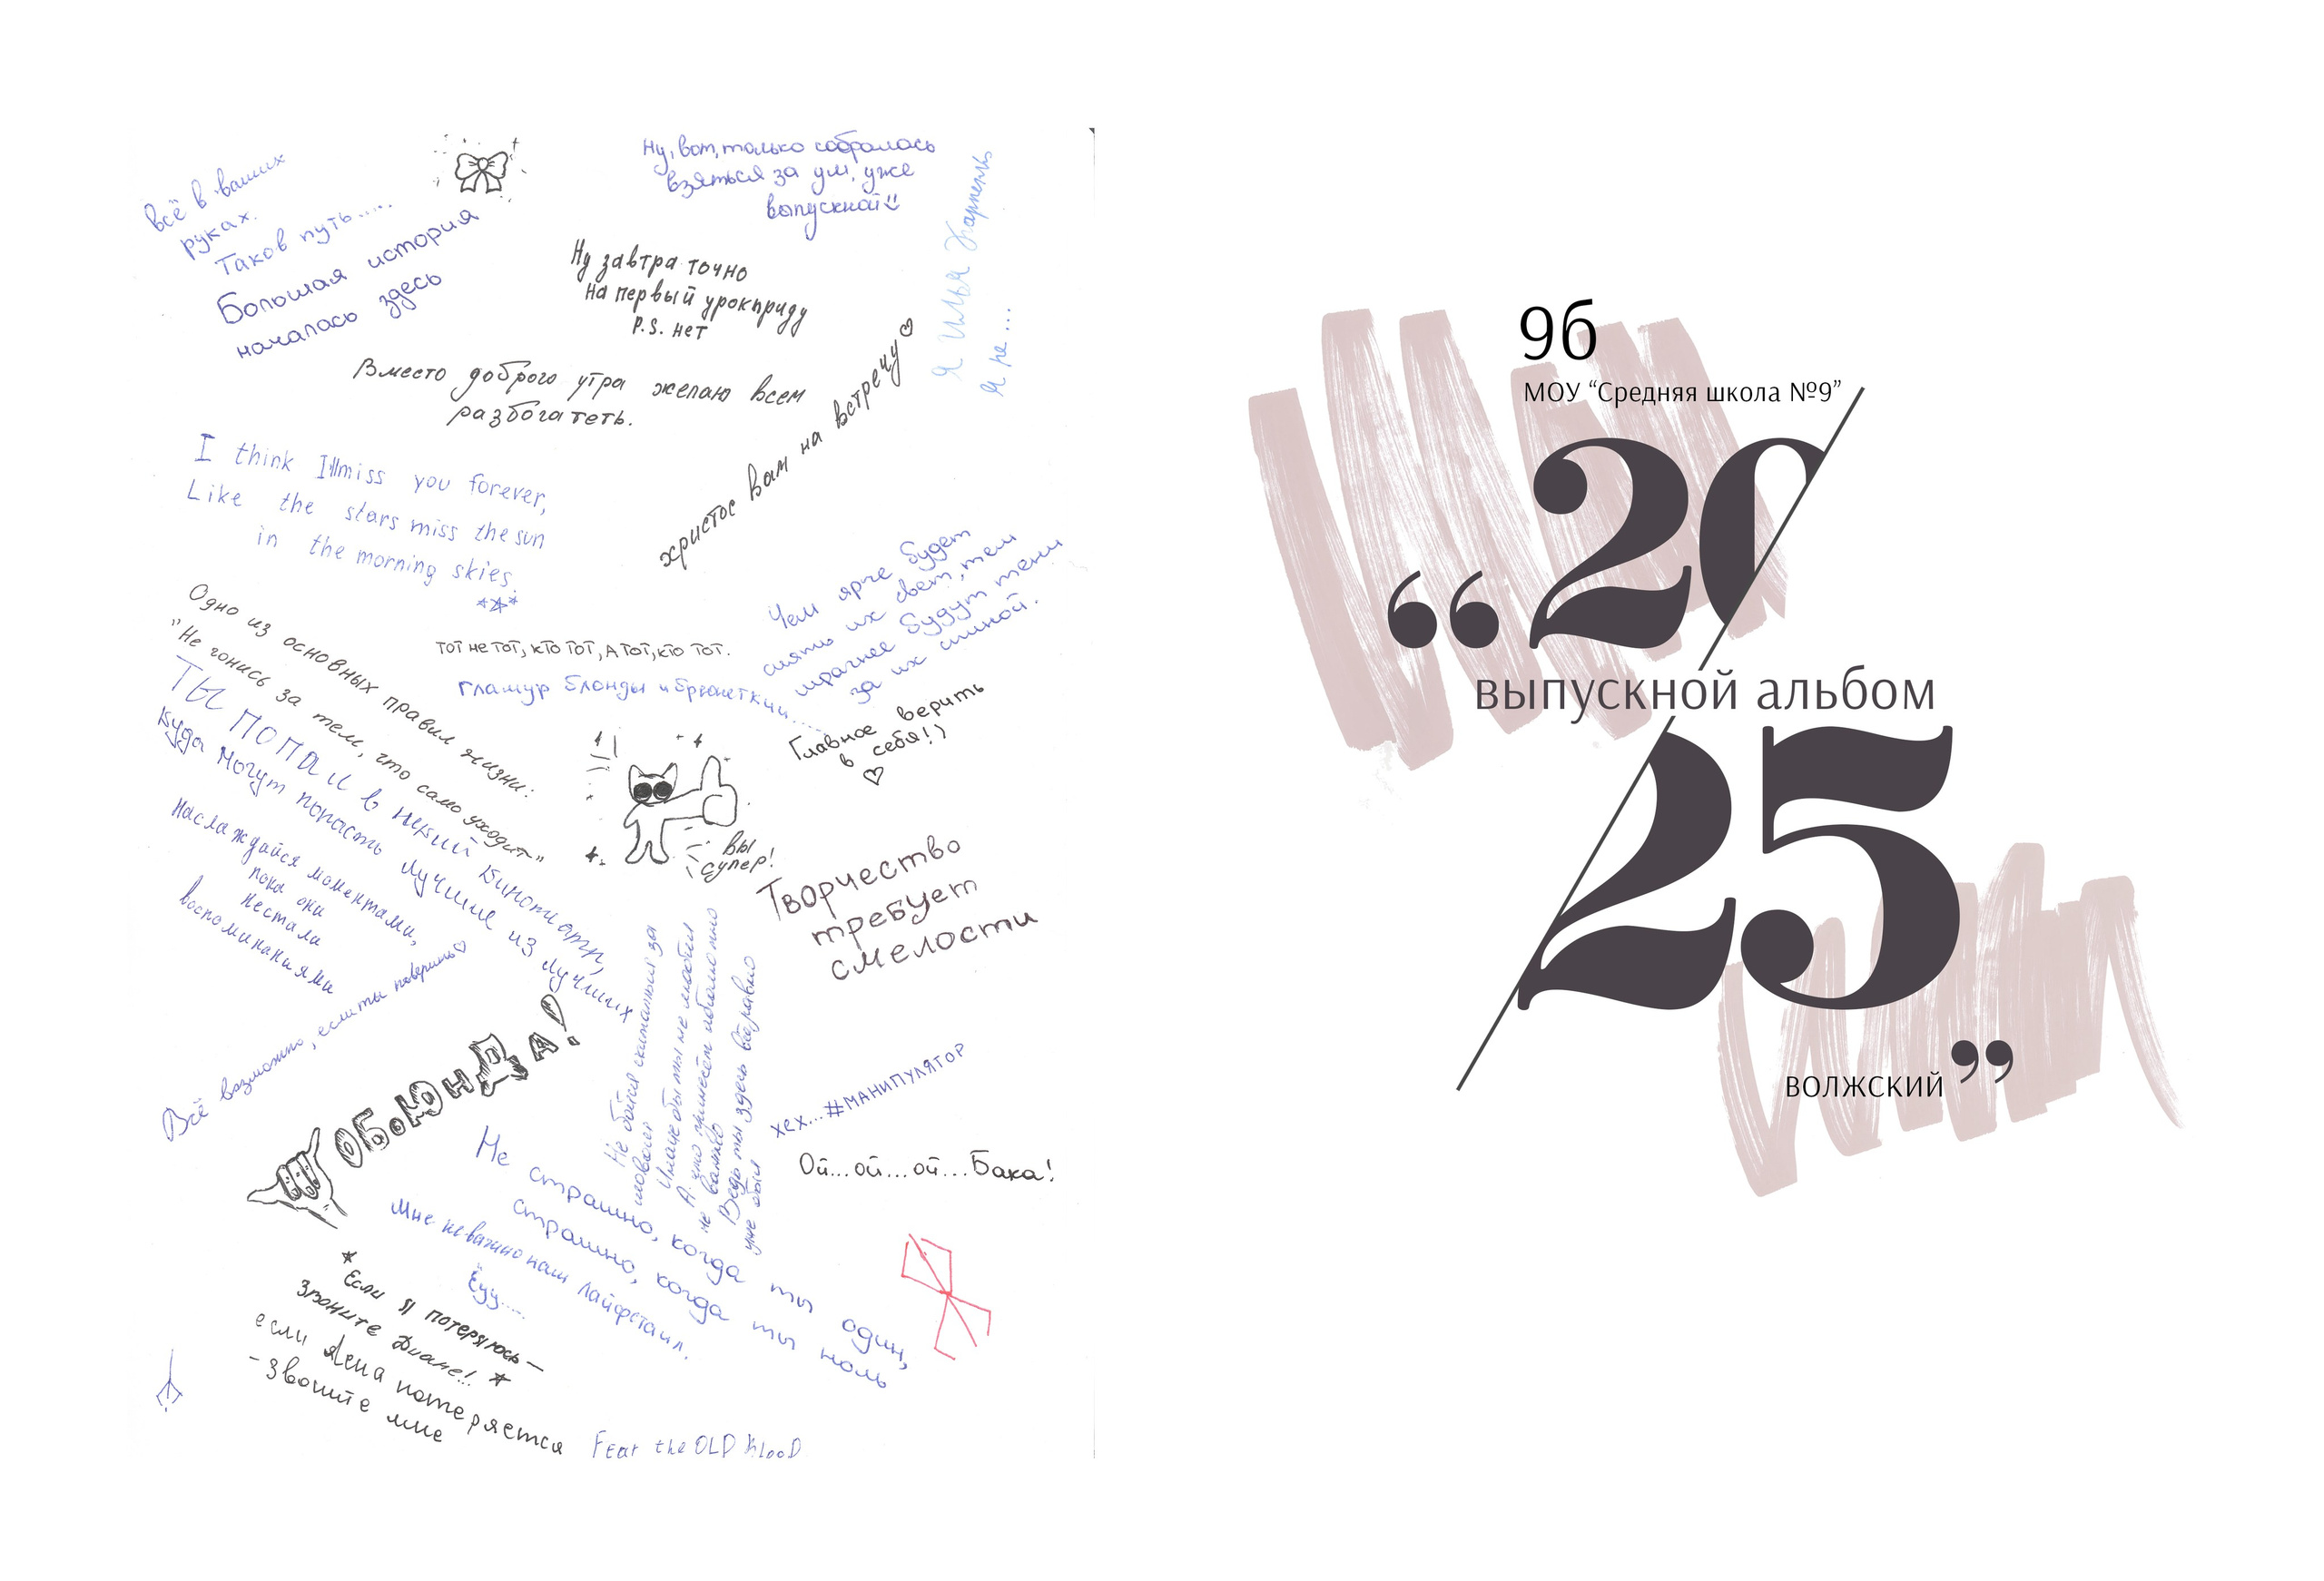 всё в ваших
руках.
Таков путь.....
Большая история
началась здесь
Ну, вот, только собралась
взяться за ум, уже
выпускной
Ну завтра точно
на первый урок приду
P.S. нет
Я Илья
я ре...
Вместо доброго утра желаю всем
разбогатеть.
христос вам на встречу
I think I'll miss you forever,
Like the stars miss the sun
in the morning skies
Чем ярче будет
сиять их свет, тем
мрачнее будут тени
за их спиной.
Одно из основных правил жизни:
"Не гонись за тем, что само уходит"
Тот не тот, кто тот, а тот, кто тот.
гламур блонды и брюнетки.....
Ты попал в некий кинотеатр,
куда могут попасть лучшие из лучших
Главное верить
в себя!)
Наслаждайся моментами,
пока они
не стали
воспоминаниями
вы
супер!
Творчество
требует
смелости
Всё возможно, если ты поверишь
ОБ.ЮНДА!
Не бойся
Иначе бы ты не
А что принесёт
не важно
Ведь ты здесь
уже был
хех...#МАНИПУЛЯТОР
Ой...ой...ой...Бака!
Не страшно, когда ты один,
страшно, когда ты ноль
Мне не важно наш лайфстаил.
Ёуу.....
Если я потеряюсь –
звоните Диане!..
если Лена потеряется
- звоните мне
Fear the OLD BlooD
9б
МОУ “Средняя школа №9”
“20
выпускной альбом
25”
ВОЛЖСКИЙ